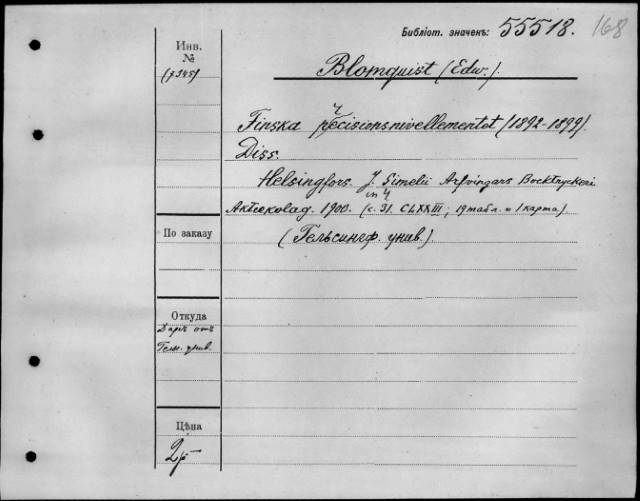 Библіот. значекъ: 55518. 168
Инв.
№
(7345)
Blomquist (Edw.).
Finska precisionsnivellementet (1892-1899).
Diss.
Helsingfors. J. Simelii Arfvingars Bocktryckeri
in 4
Aktiebolag. 1900. (с. 31. CLXXIII; 19 табл. и 1 карта)
По заказу
(Гельсингф. унив.).
Откуда
Даръ отъ
Гельс. унив.
Цѣна
2р